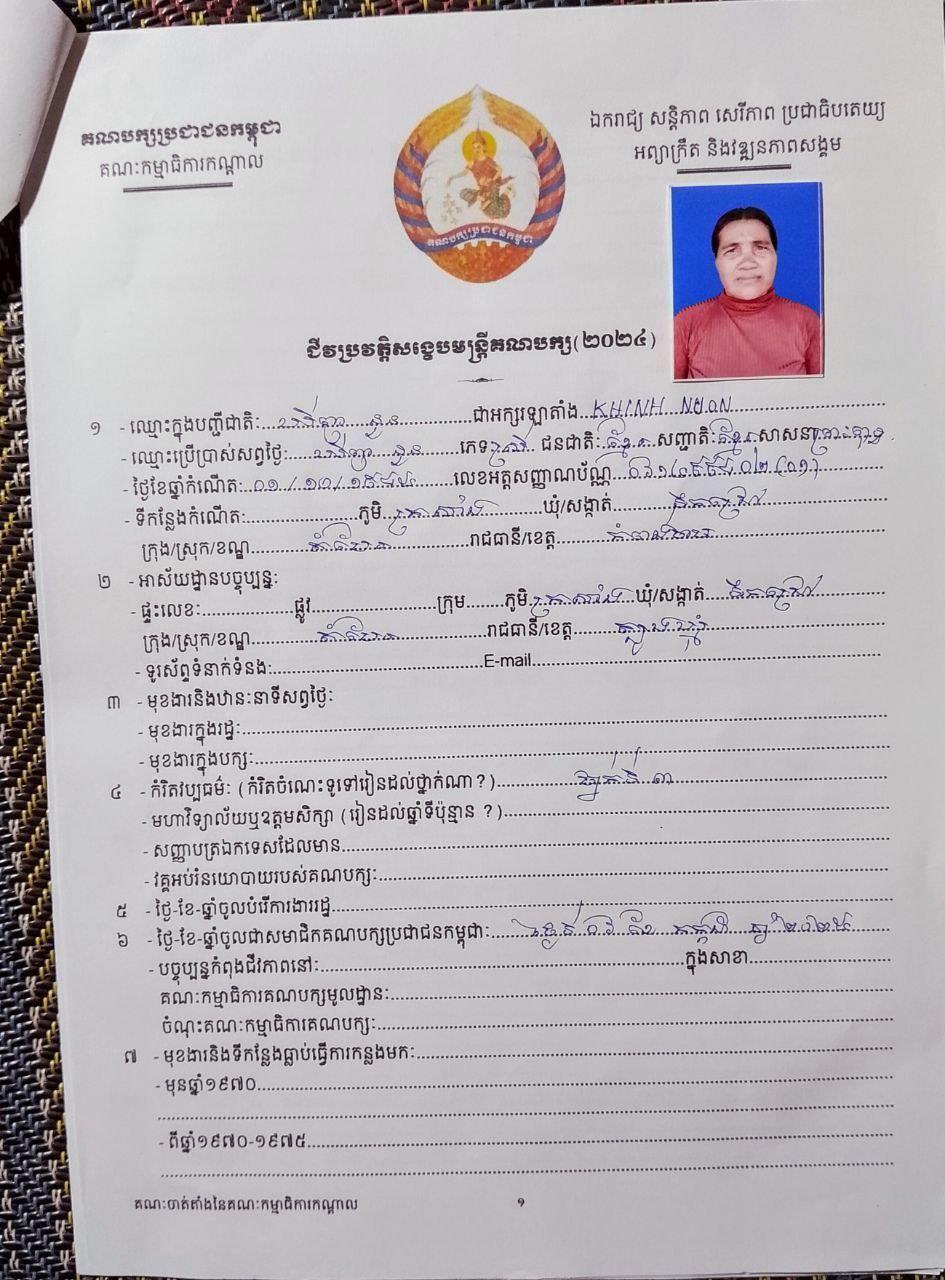 គណបក្សប្រជាជនកម្ពុជា
គណៈកម្មាធិការកណ្តាល
ឯករាជ្យ សន្តិភាព សេរីភាព ប្រជាធិបតេយ្យ
អព្យាក្រឹត និងវឌ្ឍនភាពសង្គម
គណបក្សប្រជាជនកម្ពុជា
ជីវប្រវត្តិសង្ខេបមន្ត្រីគណបក្ស(២០២៤)
១ - ឈ្មោះក្នុងបញ្ជីជាតិៈ ឃិញ នួន ជាអក្សរឡាតាំង KHINH NUON
- ឈ្មោះប្រើប្រាស់សព្វថ្ងៃៈ ឃិញ នួន ភេទ ស្រី ជនជាតិៈ ខ្មែរ សញ្ជាតិៈ ខ្មែរ សាសនា
- ថ្ងៃខែឆ្នាំកំណើតៈ លេខអត្តសញ្ញាណប័ណ្ណ
- ទីកន្លែងកំណើតៈ ភូមិ ឃុំ/សង្កាត់
ក្រុង/ស្រុក/ខណ្ឌ រាជធានី/ខេត្ត កំពង់ចាម
២ - អាស័យដ្ឋានបច្ចុប្បន្នៈ
- ផ្ទះលេខៈ ផ្លូវ ក្រុម ភូមិ ឃុំ/សង្កាត់
ក្រុង/ស្រុក/ខណ្ឌ រាជធានី/ខេត្ត ត្បូងឃ្មុំ
- ទូរស័ព្ទទំនាក់ទំនងៈ E-mail
៣ - មុខងារនិងឋានៈនាទីសព្វថ្ងៃៈ
- មុខងារក្នុងរដ្ឋៈ
- មុខងារក្នុងបក្សៈ
៤ - កំរិតវប្បធម៌ៈ (កំរិតចំណេះទូទៅរៀនដល់ថ្នាក់ណា?) ថ្នាក់ទី ៣
- មហាវិទ្យាល័យឬឧត្តមសិក្សា (រៀនដល់ឆ្នាំទីប៉ុន្មាន ?)
- សញ្ញាបត្រឯកទេសដែលមាន
- វគ្គអប់រំនយោបាយរបស់គណបក្សៈ
៥ - ថ្ងៃ-ខែ-ឆ្នាំចូលបំរើការងាររដ្ឋ
៦ - ថ្ងៃ-ខែ-ឆ្នាំចូលជាសមាជិកគណបក្សប្រជាជនកម្ពុជាៈ
- បច្ចុប្បន្នកំពុងជីវភាពនៅៈ ក្នុងសាខា
គណៈកម្មាធិការគណបក្សមូលដ្ឋានៈ
ចំណុះគណៈកម្មាធិការគណបក្សៈ
៧ - មុខងារនិងទីកន្លែងធ្លាប់ធ្វើការកន្លងមកៈ
- មុនឆ្នាំ១៩៧០
- ពីឆ្នាំ១៩៧០-១៩៧៥
គណៈចាត់តាំងនៃគណៈកម្មាធិការកណ្តាល ១